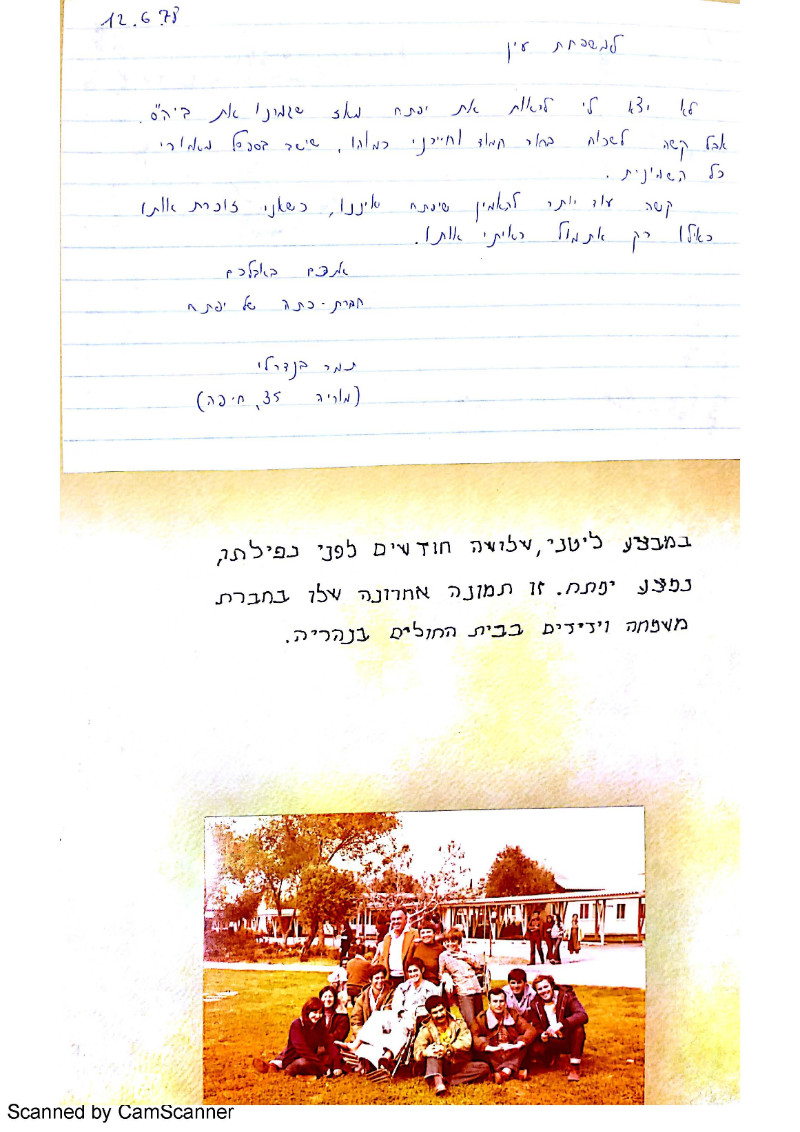 12.6.78
למשפחת עין
לא יצא לי לראות את יפתח מאז שגמרנו את ביה"ס.
אבל קשה לשכוח בחור חמוד וחייכני כמוהו, שישב בספסל מאחורי
כל השמינית.
קשה עוד יותר להאמין שיפתח איננו, כשאני זוכרת אותו
כאילו רק אתמול ראיתי אותו.
אתכם באבלכם
חברת-כתה של יפתח
תמר בנדרלי
(מוריה 35, חיפה)
במבצע ליטני, שלושה חודשים לפני נפילתו,
נפצע יפתח. זו תמונה אחרונה שלו בחברת
משפחה וידידים בבית החולים בנהריה.
Scanned by CamScanner